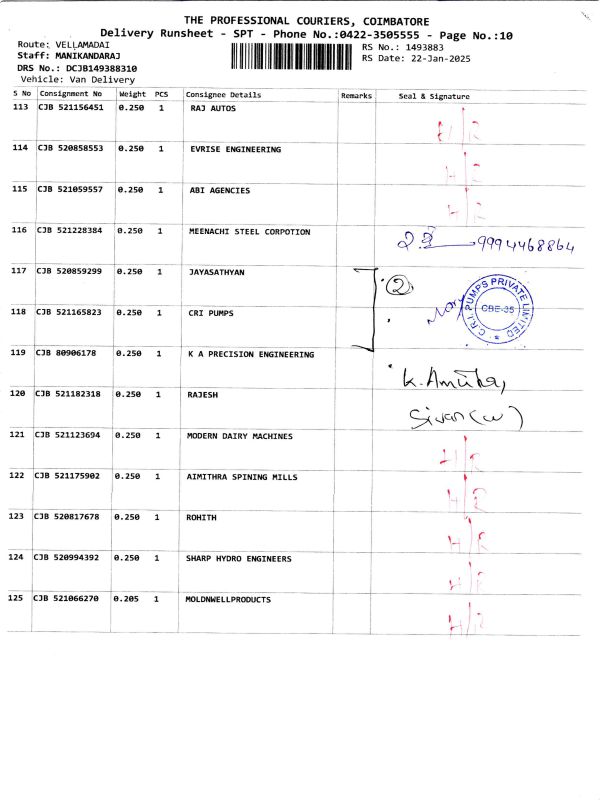 THE PROFESSIONAL COURIERS, COIMBATORE
Delivery Runsheet - SPT - Phone No.:0422-3505555 - Page No.:10
Route: VELLAMADAI
Staff: MANIKANDARAJ
DRS No.: DCJB149388310
Vehicle: Van Delivery
RS No.: 1493883
RS Date: 22-Jan-2025
S No Consignment No Weight PCS Consignee Details Remarks Seal & Signature
113 CJB 521156451 0.250 1 RAJ AUTOS H/R
114 CJB 520858553 0.250 1 EVRISE ENGINEERING H/R
115 CJB 521059557 0.250 1 ABI AGENCIES H/R
116 CJB 521228384 0.250 1 MEENACHI STEEL CORPOTION 9994468864
117 CJB 520859299 0.250 1 JAYASATHYAN 2
118 CJB 521165823 0.250 1 CRI PUMPS C.R.I. PUMPS PRIVATE LIMITED CBE-35
119 CJB 80906178 0.250 1 K A PRECISION ENGINEERING K.Amutha,
120 CJB 521182318 0.250 1 RAJESH Sivan(w)
121 CJB 521123694 0.250 1 MODERN DAIRY MACHINES H/R
122 CJB 521175902 0.250 1 AIMITHRA SPINING MILLS H/R
123 CJB 520817678 0.250 1 ROHITH H/R
124 CJB 520994392 0.250 1 SHARP HYDRO ENGINEERS H/R
125 CJB 521066270 0.205 1 MOLDNWELLPRODUCTS H/R